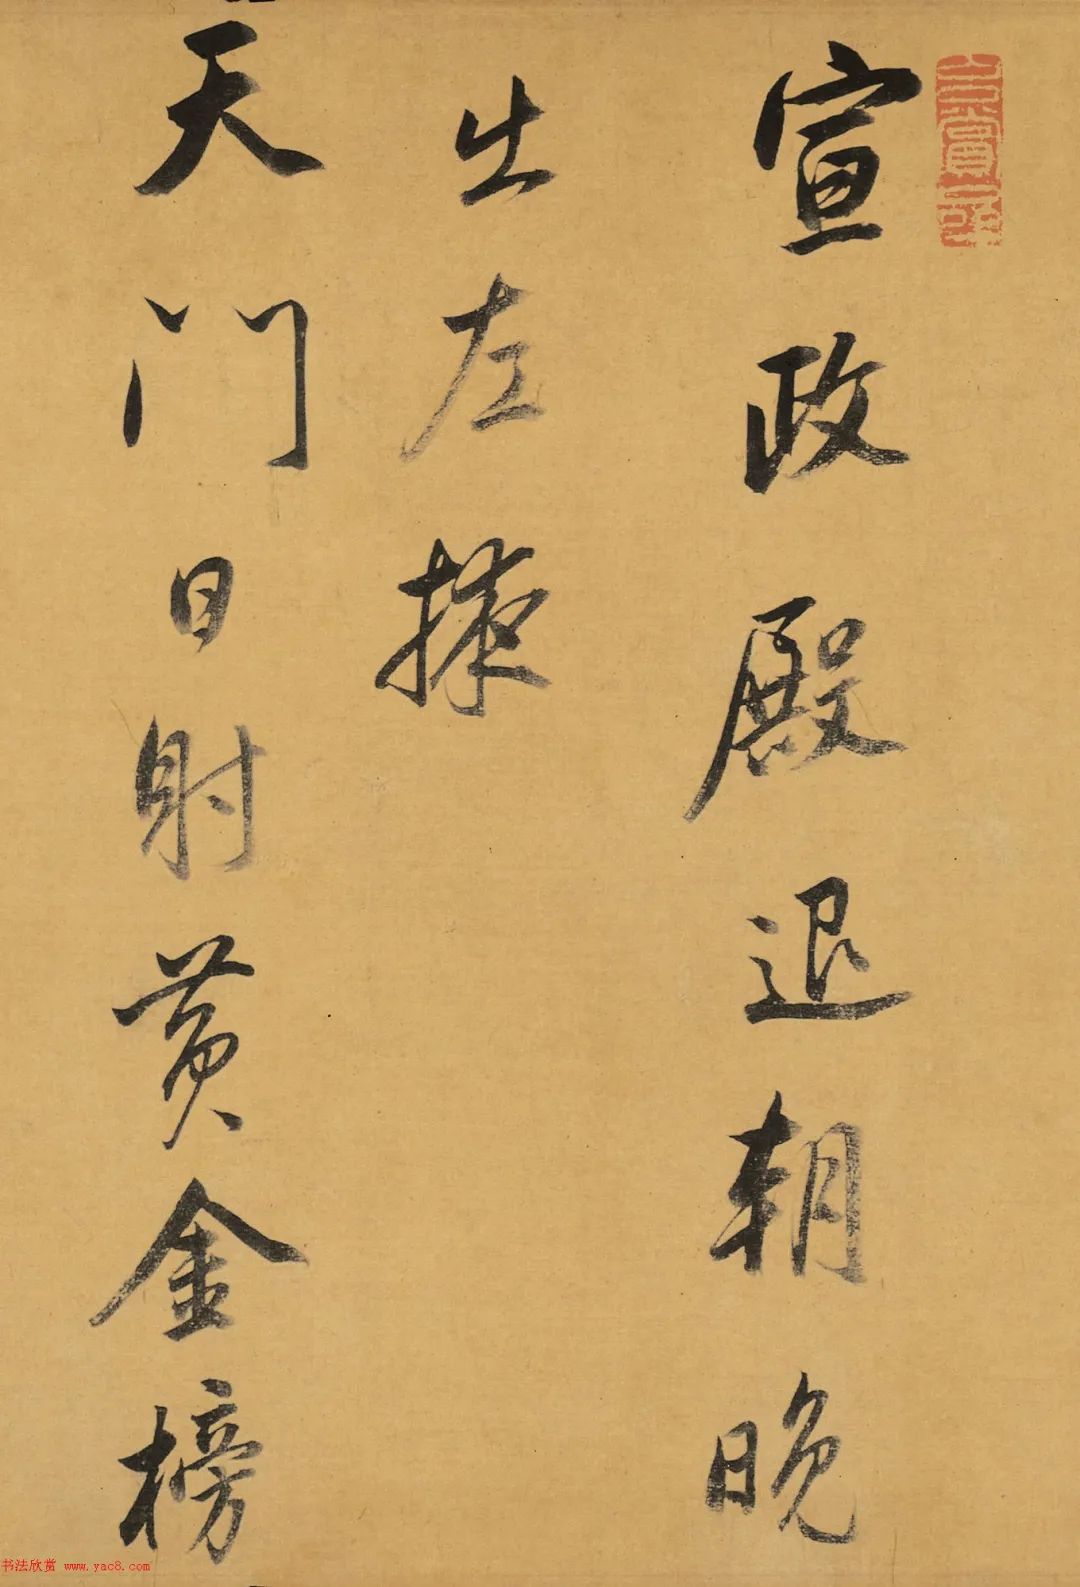 宣政殿退朝晚
出左掖
天門日射黃金榜
书法欣赏 www.yac8.com